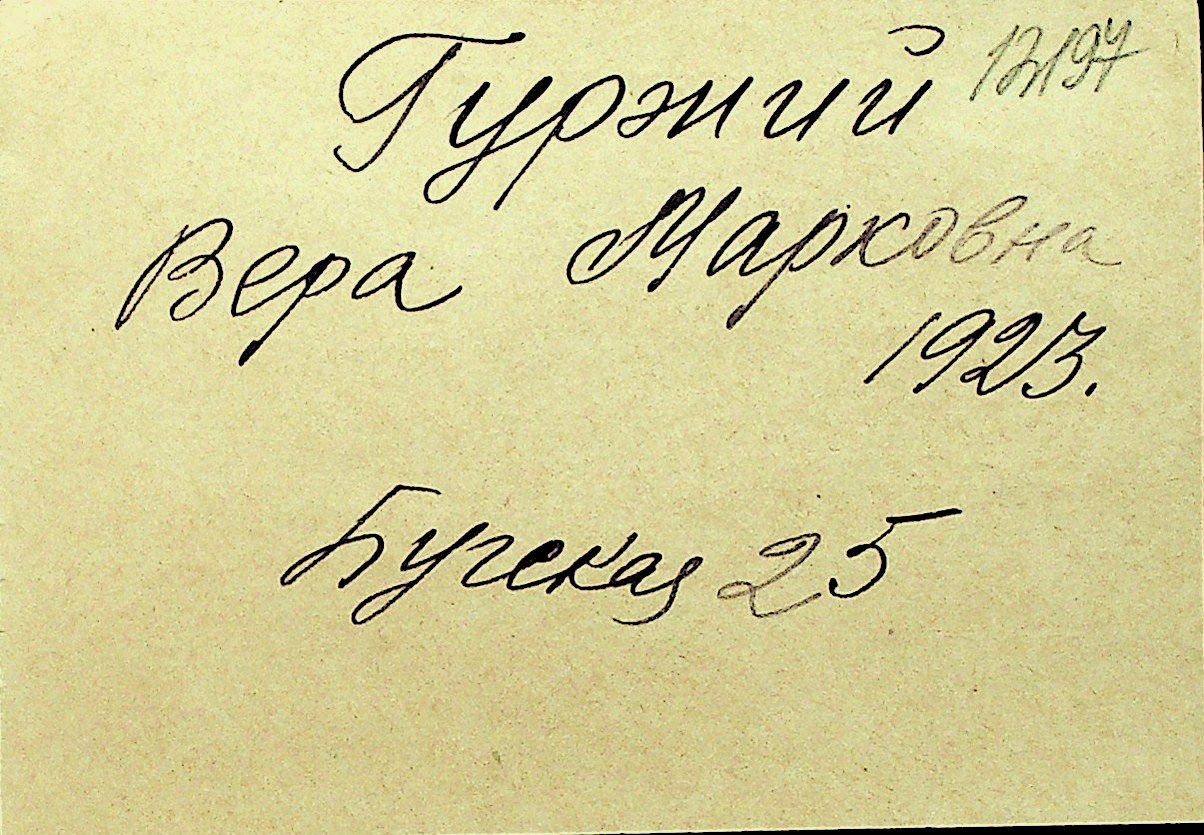 Гуржий
Вера Марковна
1923.
Бугская 25